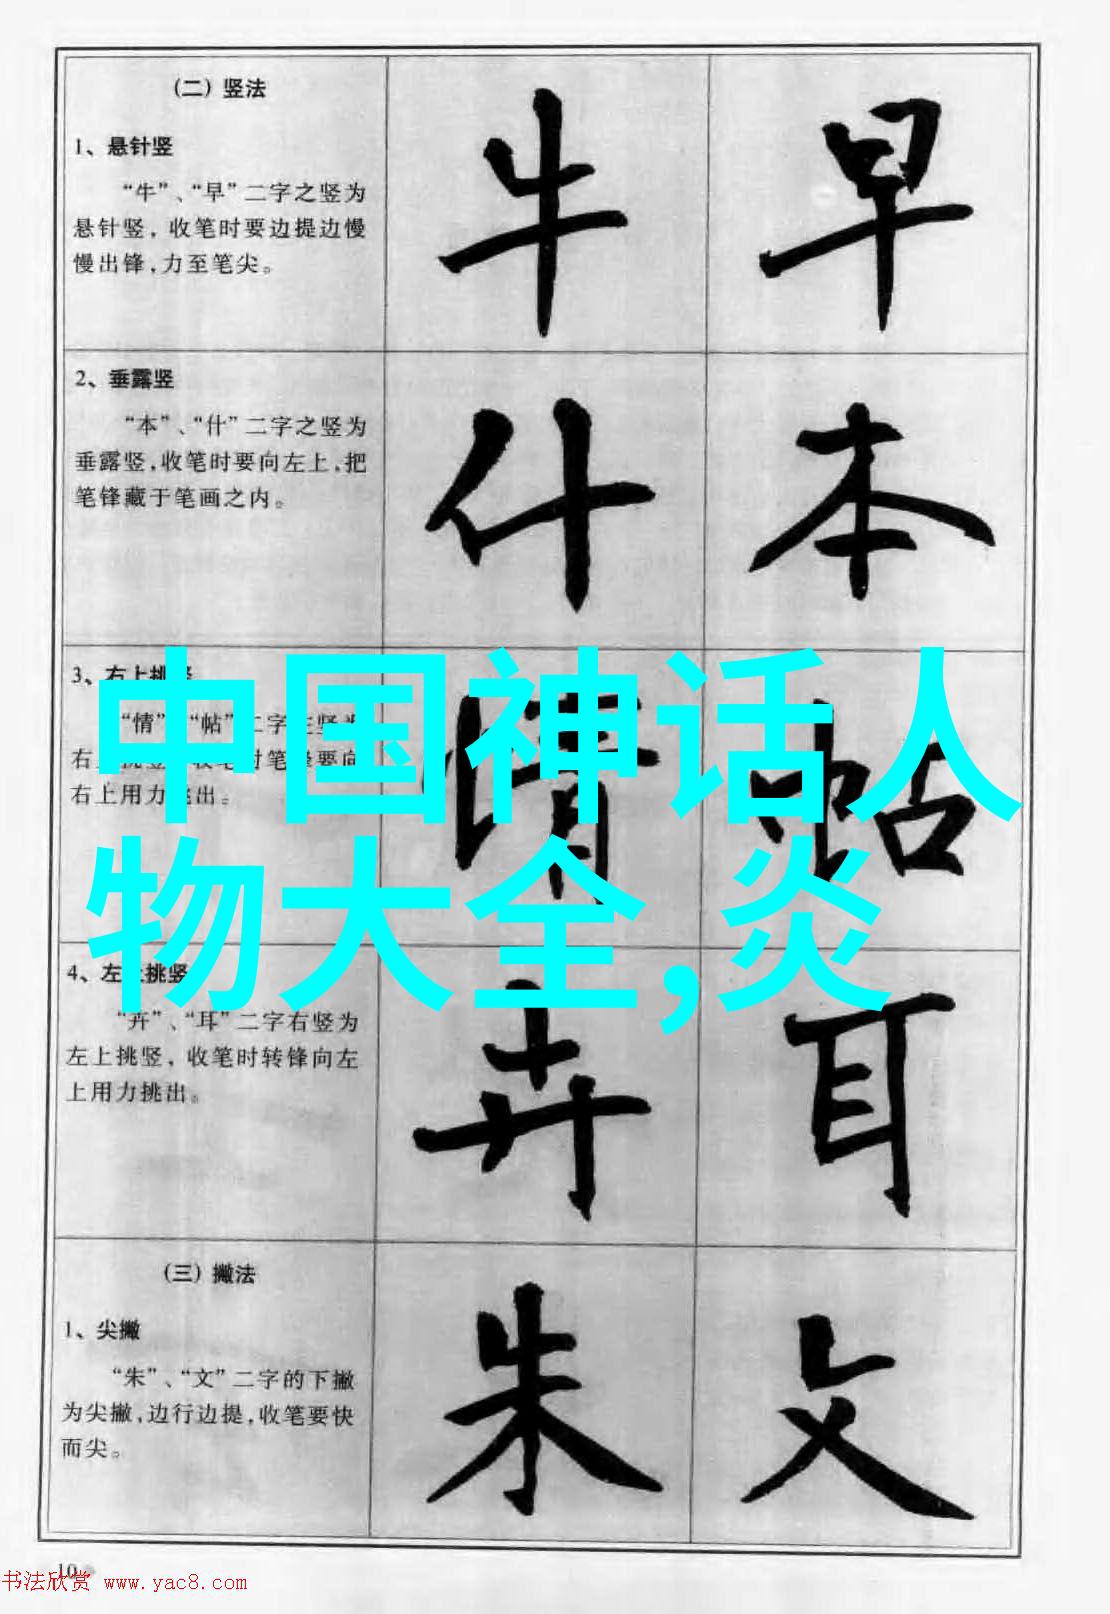 (二) 竖法
1、悬针竖
“牛”、“早”二字之竖为
悬针竖, 收笔时要边提边慢
慢出锋,力至笔尖。
牛
早
2、垂露竖
“本”、“什”二字之竖为
垂露竖,收笔时要向左上,把
笔锋藏于笔画之内。
什
本
3、右上挑竖
“情”“帖”二字
右 收笔时笔锋要向
右上用力挑出。
情
帖
中国神话人
物大全,炎
4、左上挑竖
“卉”、“耳”二字右竖为
左上挑竖, 收笔时转锋向左
上用力挑出。
卉
耳
(三) 撇法
1、尖撇
“朱”、“文”二字的下撇
为尖撇,边行边提,收笔要快
而尖。
朱
文
10
书法欣赏 www.yac8.com